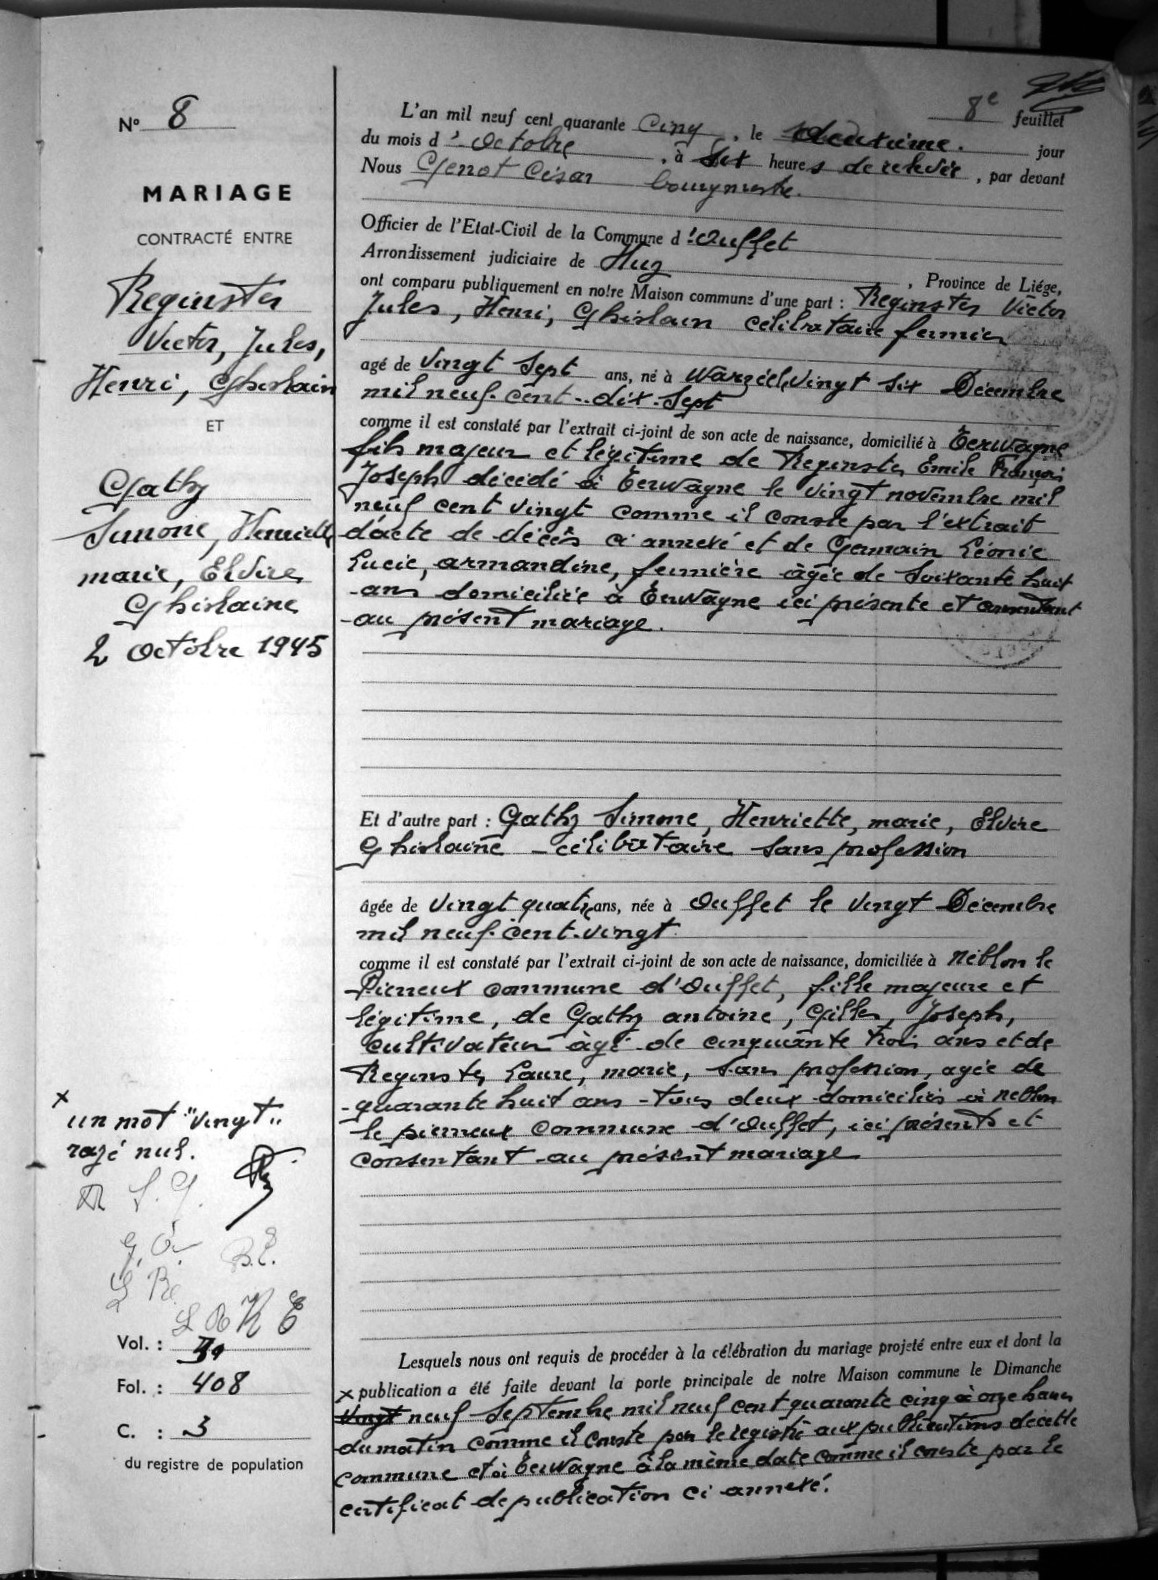 8e feuillet
N° 8
MARIAGE
CONTRACTÉ ENTRE
Reginster
Victor, Jules,
Henri, Ghislain
ET
Gathy
Simone, Henriette
marie, Elvire
Ghislaine
2 octobre 1945
L'an mil neuf cent quarante cinq, le deuxième jour
du mois d'octobre, à six heures de relevée, par devant
Nous Genot César bourgmestre.
Officier de l'Etat-Civil de la Commune d'Ouffet
Arrondissement judiciaire de Huy, Province de Liége,
ont comparu publiquement en notre Maison commune d'une part : Reginster Victor
Jules, Henri, Ghislain célibataire fermier
agé de vingt sept ans, né à Warzée, vingt six Décembre
mil neuf-cent-dix-sept
comme il est constaté par l'extrait ci-joint de son acte de naissance, domicilié à Terwagne
fils majeur et légitime de Reginster Emile François
Joseph décédé à Terwagne le vingt novembre mil
neuf cent vingt comme il conste par l'extrait
d'acte de décès ci annexé et de Germain Léonie
Lucie, armandine, fermière âgée de soixante huit
ans domiciliée à Terwagne ici présente et consentant
au présent mariage.
Et d'autre part : Gathy Simone, Henriette, marie, Elvire
Ghislaine - célibataire sans profession
âgée de vingt quatre ans, née à Ouffet le vingt Décembre
mil neuf-cent-vingt
comme il est constaté par l'extrait ci-joint de son acte de naissance, domiciliée à néblon le
Pierreux commune d'Ouffet, fille majeure et
légitime, de Gathy antoine, Gilles, Joseph,
cultivateur âgé de cinquante trois ans et de
Reginster Laure, marie, sans profession, agée de
quarante huit ans - tous deux domiciliés à néblon
le pierreux commune d'Ouffet, ici présents et
consentant au présent mariage
x
un mot "vingt"
rayé nul.
S. G.
L O R E
Vol. :
Fol. : 408
C. : 3
du registre de population
Lesquels nous ont requis de procéder à la célébration du mariage projeté entre eux et dont la
x publication a été faite devant la porte principale de notre Maison commune le Dimanche
vingt neuf Septembre mil neuf cent quarante cinq à onze heures
du matin comme il conste par le registre aux publications de cette
commune et à Terwagne à la même date comme il conste par le
certificat de publication ci annexé.